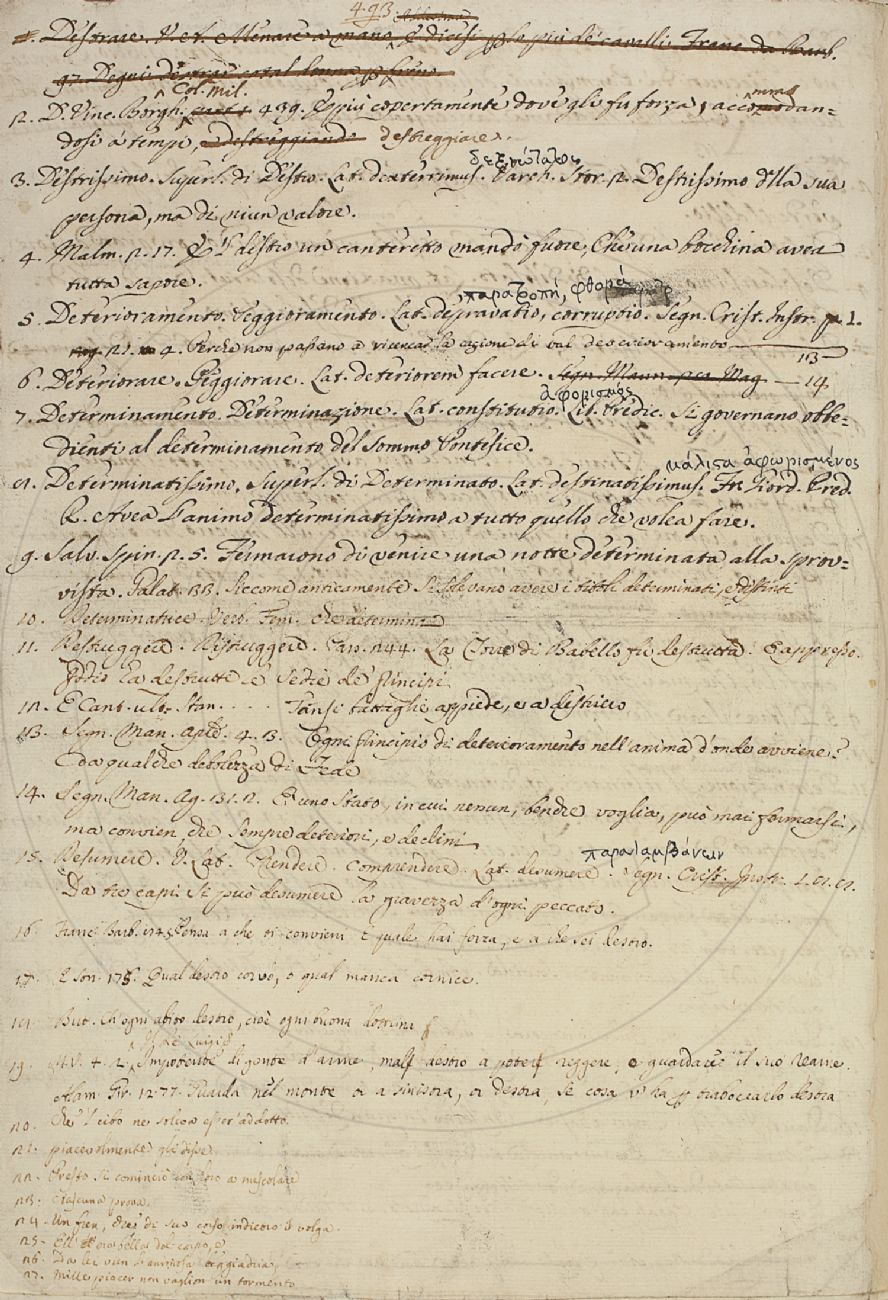 493.
Destrare. V. et. Menare a mano, e dicesi
2. D. Vinc. Borgh. Col. mil. 439. E più copertamente dove gli fu forza, accomodan-
dosi a' tempi, destreggiare.
δεξιώτατος
3. Destrissimo. Superl. di Destro. Lat. dexterrimus. Varch. Stor. 12. Destrissimo della sua
persona, ma di niun valore.
4. Malm. 2. 17. E 'l destro un canteretto mandò fuore, Che una bocchina avea
tutta sapore.
παρατροπή, φθορά
5. Deterioramento. Peggioramento. Lat. depravatio, corruptio. Segn. Crist. Instr. 1.
4. Perchè non passano a vicenda la cagione di tal deterioramento
13
6. Deteriorare. Peggiorare. Lat. deteriorem facere. Segn. Mann. per Mag. 14
ἀφορισμός
7. Determinamento. Determinazione. Lat. constitutio. Lit. Predic. Si governano obbe-
dienti al determinamento del Sommo Pontefice.
μάλιστα ἀφωρισμένος
8. Determinatissimo. Superl. di Determinato. Lat. destinatissimus. Fr. Giord. Pred.
R. Avea l'animo determinatissimo a tutto quello che volea fare.
9. Salv. Spin. 2. 5. Fermarono di venire una notte determinata alla sprov-
vista. Galat. 33. Siccome anticamente si solevano avere i titoli determinati, e distinti
10. Determinatrice. Verb. Fem. che determina
11. Distruggere. La Torre di Babello fu destrutta. E appresso.
Iddio ha destrutte le Sedie de' Principi
12. E Cant. ult. Stan. . . . Fansi battaglie appiede, e a destriero
13. Segn. Man. Apr. 4. 3. Ogni principio di deterioramento nell'anima d'onde avviene?
da qualche debolezza di Fede
14. Segn. Man. Ag. 31. 2. È uno Stato, in cui nemen, benche voglia, può mai fermarsi,
ma convien, che sempre deteriori, e declini
παραλαμβάνειν
15. Desumere. V. Lat. Prendere. Comprendere. Lat. desumere. Segn. Crist. Instr. 1. 8. 8.
Da tre capi si può desumere la gravezza d'ogni peccato.
16. Franc. Barb. 145. Pensa a che ti convieni E quale hai forza, e a che sei destro.
17. E son. 175. Qual destro corvo, o qual manca cornice.
18. But. Ch'ogni abito destro, cioè ogni buona dottrina
Il Re Luigi
19. M. V. 4. 2. Impotente di gente d'arme, mal destro a poter reggere, e guardare il suo reame.
Alam. Gir. 12. 77. Guarda nel monte or a sinistra, or destra, Se cosa v'ha per traboccarlo destra
20. Che 'l cibo ne solea esser addotto.
21. piacevolmente gli disse
22. Presto si cominciò con loro a mescolare
23. Ciascuna prova.
24. Un fien, che di suo corso indietro volga.
25.
26.
27. Mille piacer non vaglion un tormento